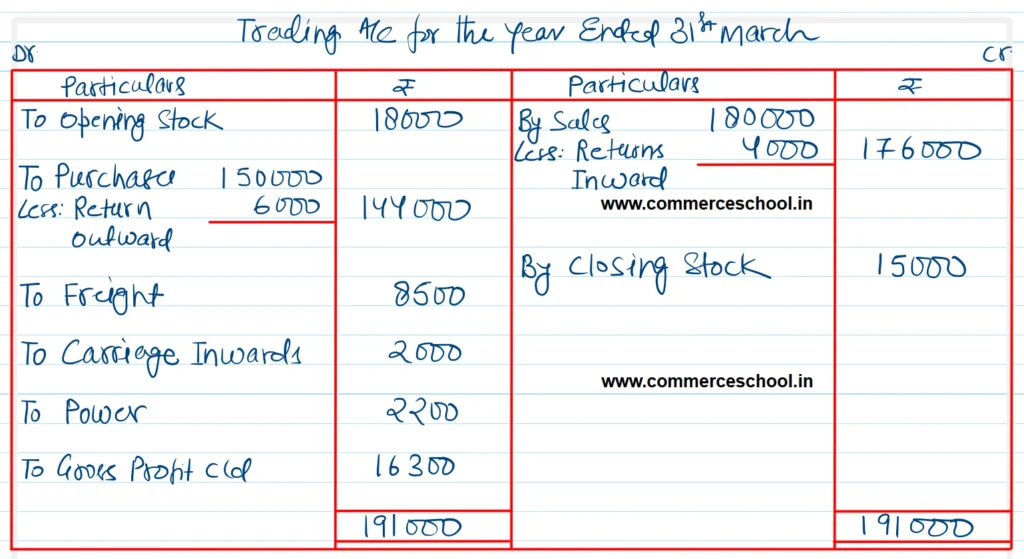 Trading A/c for the year Ended 31st March
Dr
Cr
Particulars ₹ Particulars ₹
To Opening Stock 18000
By Sales 180000
Less: Returns Inward 4000 176000
To Purchase 150000
Less: Return outward 6000 144000
www.commerceschool.in
By Closing Stock 15000
To Freight 8500
To Carriage Inwards 2000
www.commerceschool.in
To Power 2200
To Gross Profit c/d 16300
191000 191000